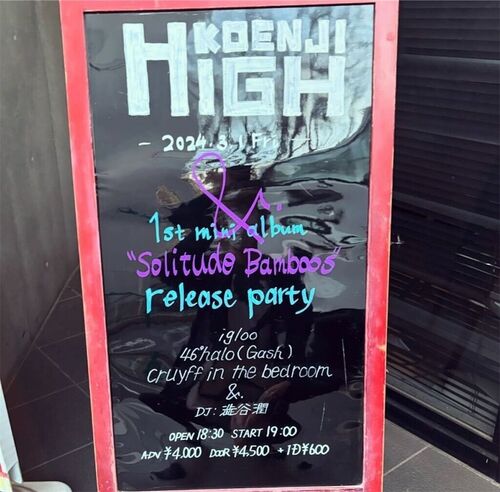 KOENJI
HIGH
- 2024.3.1 Fri.
&.
1st mini album
"Solitude Bamboos"
release party
igloo
46°halo (Gash)
cruyff in the bedroom
&.
DJ: 澁谷潤
OPEN 18:30 START 19:00
ADV ¥4.000 DOOR ¥4.500 +1D ¥600